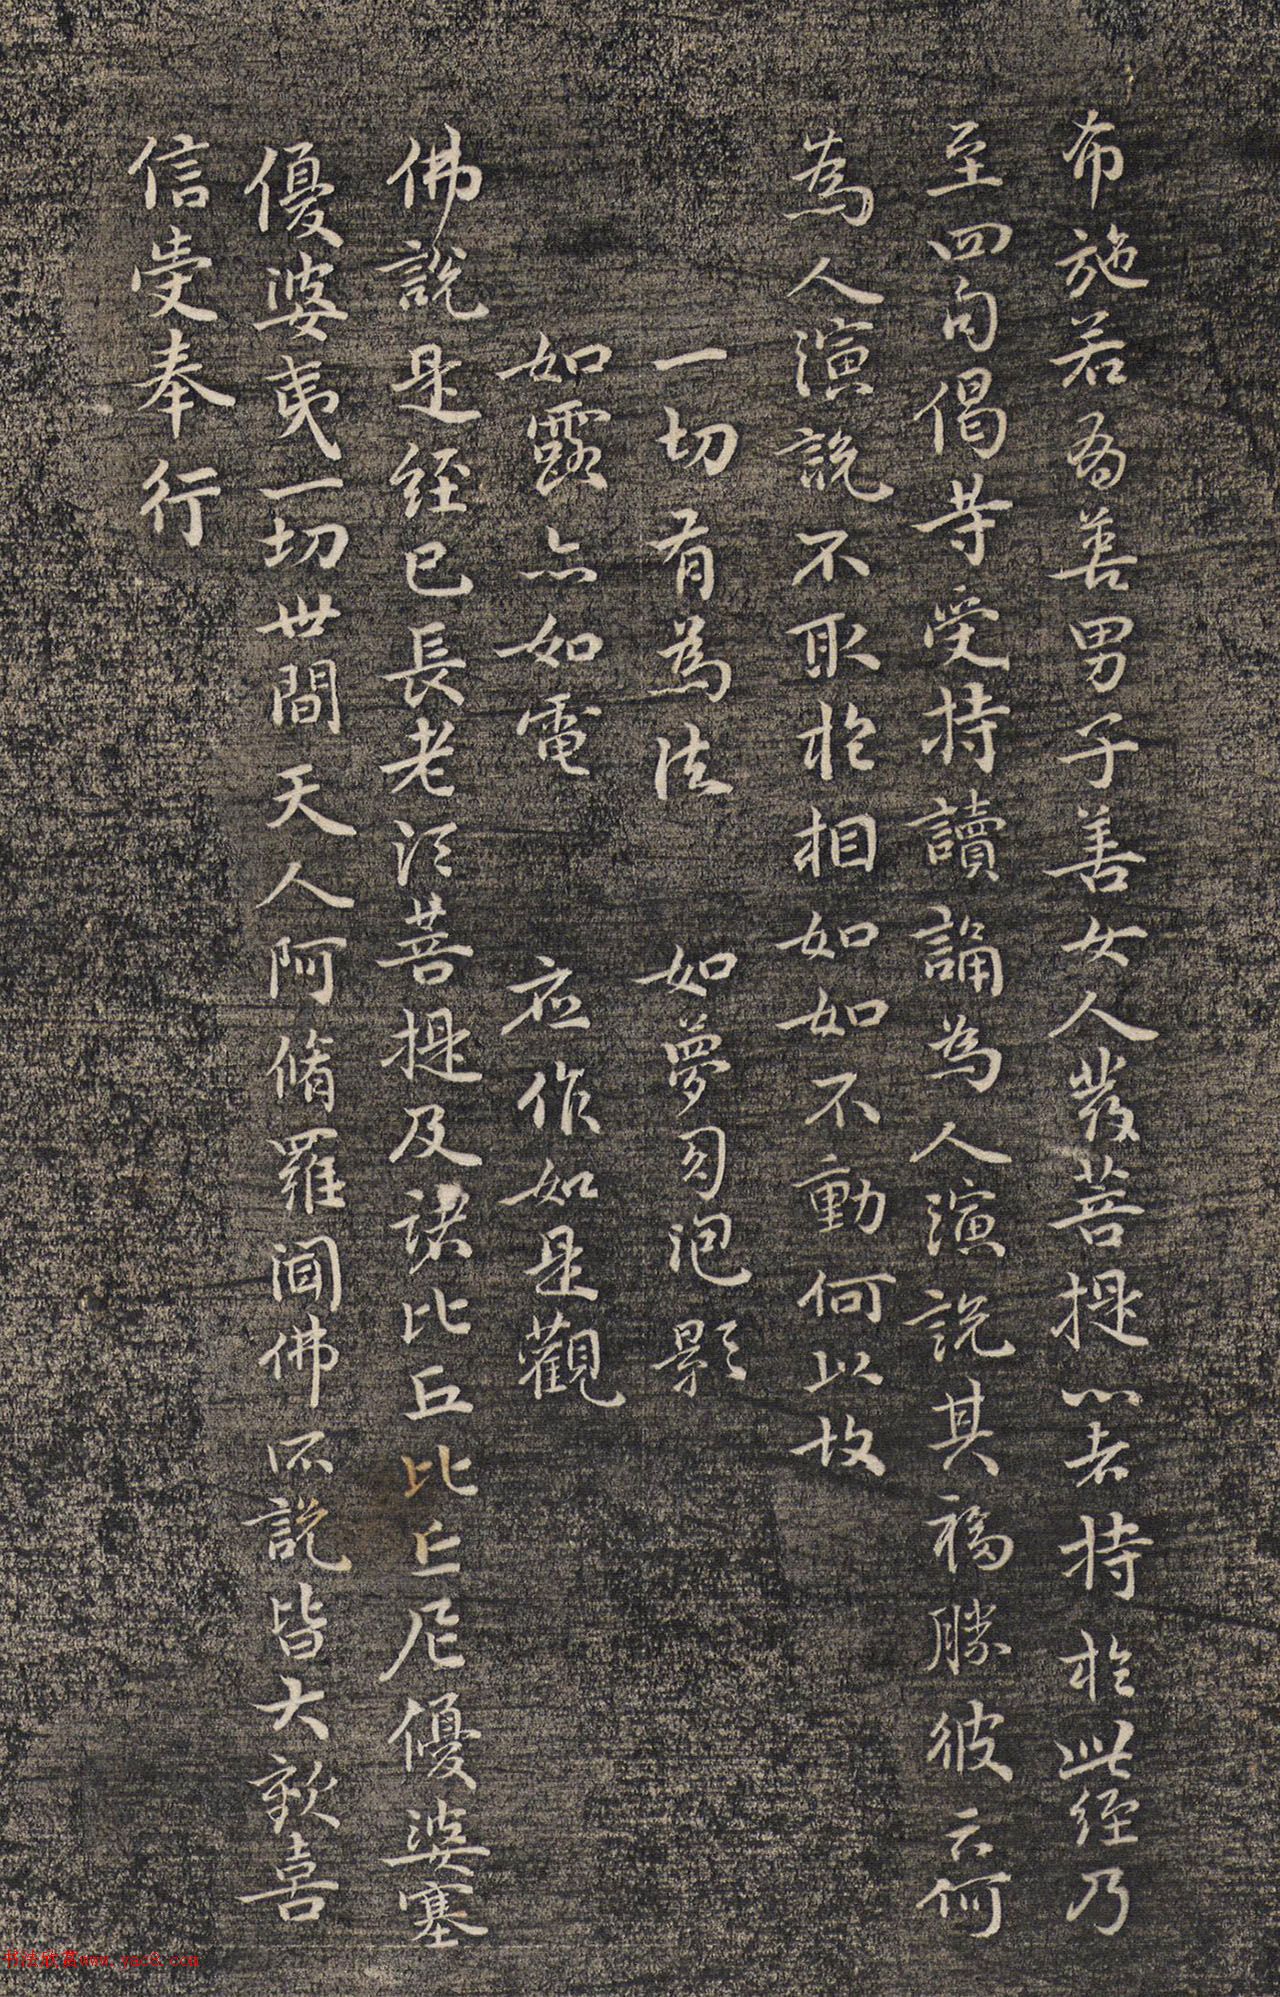 布施若有善男子善女人發菩提心者持於此經乃
至四句偈等受持讀誦為人演說其福勝彼云何
為人演說不取於相如如不動何以故
一切有為法 如夢幻泡影
如露亦如電 應作如是觀
佛說是經已長老須菩提及諸比丘比丘尼優婆塞
優婆夷一切世間天人阿脩羅聞佛所說皆大歡喜
信受奉行
书法欣赏www.yac8.com